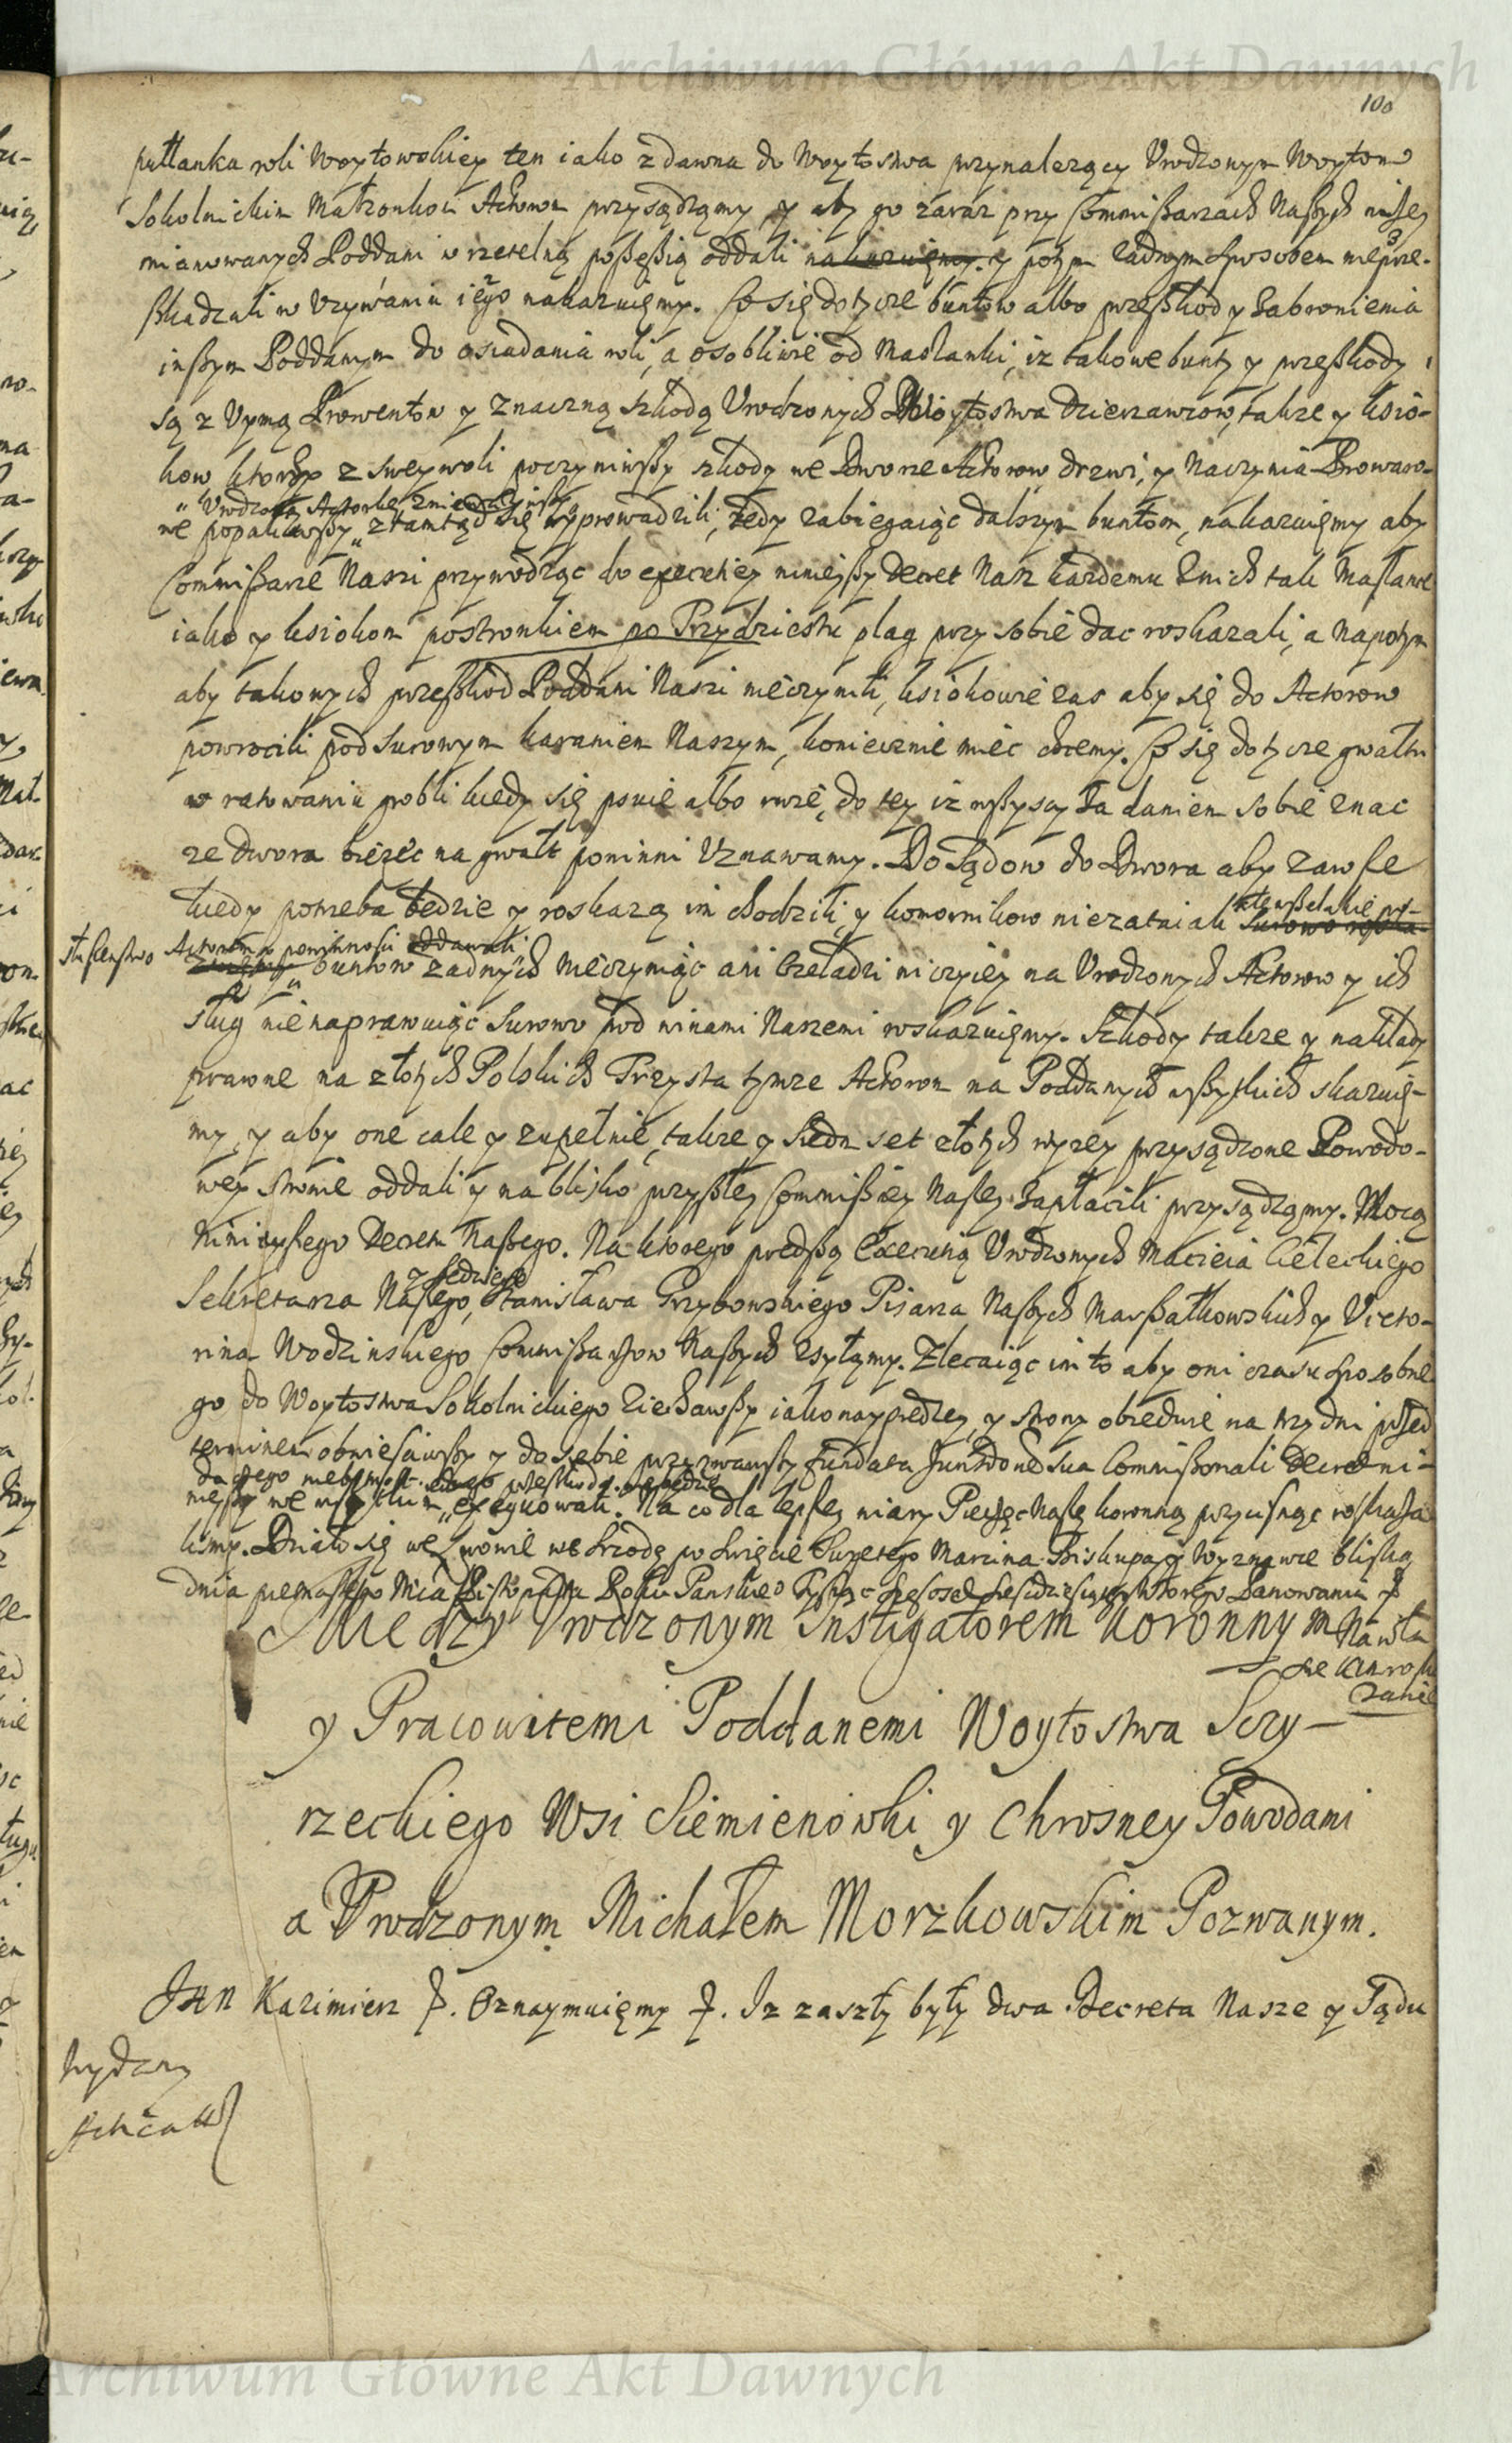 Archiwum Główne Akt Dawnych
100
pułłanka roli Woytowskiey ten iako zdawna do Woytostwa przynalezący Vrodzonym Woytom
Sokolnickim Małzonkom Actorom przysądzamy, y aby go zaraz przy Commissarzach Naszych niżey
mianowanych Poddani w rzetelną possessią oddali nakazuięmy. y potym zadnym sposobem nieprze-
szkadzali w vzywaniu iego nakazuięmy. Co się dotycze buntow albo przeszkod y zabronienia
inszym Poddanym do osiadania roli, a osobliwie od Maslanki, iz takowe bunty y przeszkody
są z Vymą Prowentow y znaczną szkodą Vrodzonych Woytostwa Dzierzawcow, takze y
kow ktorzy z swey woli poczyniwszy szkody we Dworze Actorow drzwi, y Naczynia Browaro-
Vrodzoną Actorkę
we popaliwszy ztamtąd się wyprowadzili, tedy zabiegaiąc dalszym buntom, nakazuięmy aby
Commissarze Naszi przywodząc do execuciey ninieyszy Decret Nasz kazdemu znich tak Maslance
iako y postronkiem po Trzydziestu plag przy sobie dac roskazali, a napotym
aby takowych przeszkod Poddani Naszi nieczynili, zas aby się do Actorow
powrocili pod surowym karaniem Naszym, koniecznie miec chcemy. Co się dotycze gwałtu
w ratowaniu grobli kiedy się psuie albo rwie, do tey iz wszyscy za daniem sobie znac
ze dwora biezec na gwałt powinni Vznawamy. Do Sądow do Dwora aby zawsze
kiedy potrzeba będzie y roskazą im chodzili, y komornikow niezataiali
słuszenstwo Actorom powinnosci oddawali
buntow zadnych nieczyniąc ani Czeladzi niczyiey na Vrodzonych Actorow y ich
sług nienaprawuiąc Surowo pod winami Naszemi wskazuięmy. Szkody takze y nakłady
prawne na złotych Polskich Trzysta tymze Actorom na Poddanych wszystkich skazuię-
my, y aby one cale y zupełnie, takze y Siedm set złotych wyzey przysądzone Powodo-
wey stronie oddali y na blisko przyszłey Commissiey Naszey zapłacili przysądzamy. Mocą
Ninieyszego Decretu Naszego. Na ktorego prędszą Execucią Vrodzonych Macieia Celeckiego
Sekretarza Naszego, Stanisława Grzybowskiego Pisarza Naszych Marszałkowskich y Victo-
rina Wodzinskiego Commissarzow Naszych zsyłamy. Zlecaiąc im to aby oni czasu sposobne-
go do Woytostwa Sokolnickiego ziechawszy iako nayprędzey, y strony obiedwie na trzy dni przed
terminem obwiesciwszy y do siebie przyzwawszy fundata Jurisdone sua Commissoriali Decret ni-
nieyszy we wszystkim exequowali. Na co dla lepszey wiary Pieczęc Naszę koronną przycisnąc roskaza-
lismy. Działo się we Lwowie we Srzodę po Swięcie Swiętego Marcina Biskupa y Wyznawce bliską
dnia pietnastego Listopada Roku Panskiego Tysiąc Szescset Szescdziesiątym wtorego Panowania
Między Vrodzonym Instigatorem koronnym Na
y Pracowitemi Poddanemi Woytostwa Sczy-
rzeckiego Wsi Siemienowki y Chrosney Powodami
a Vrodzonym Michałem Morzkowskim Pozwanym.
Jan Kazimierz. Oznaymuięmy. Iz zaszły były dwa Decreta Nasze y Sądu
Wydany
Archiwum Główne Akt Dawnych